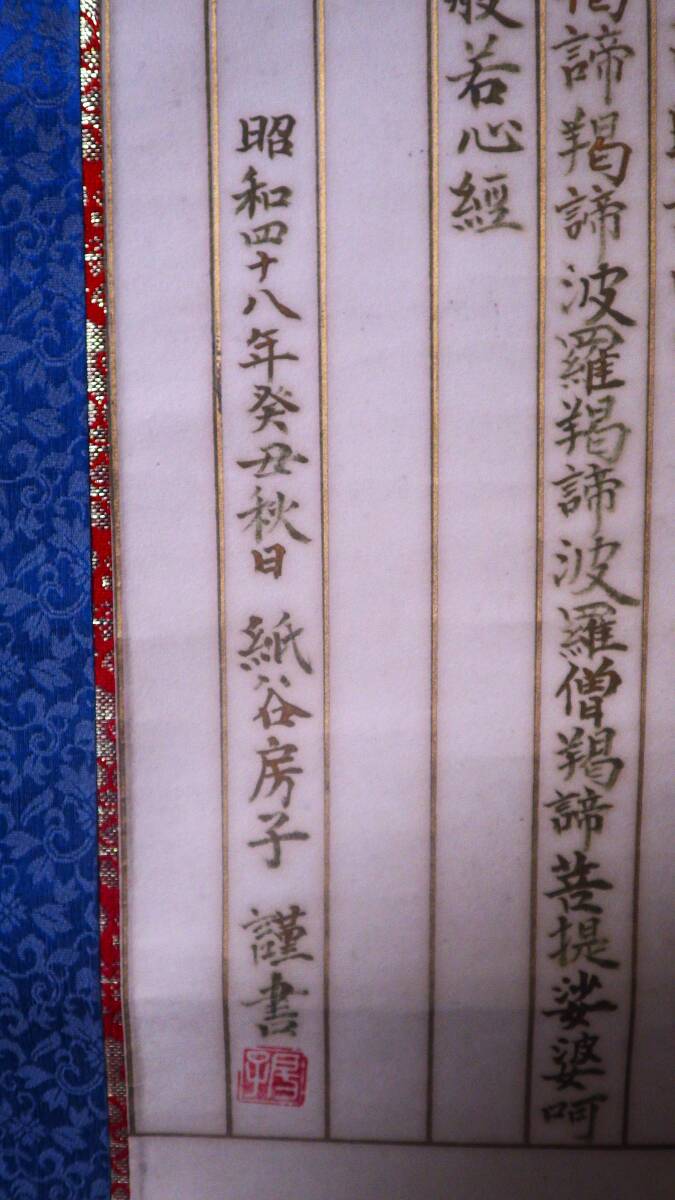 羯諦羯諦波羅羯諦波羅僧羯諦菩提娑婆呵
般若心經
昭和四十八年癸丑秋日 紙谷房子 謹書
房子